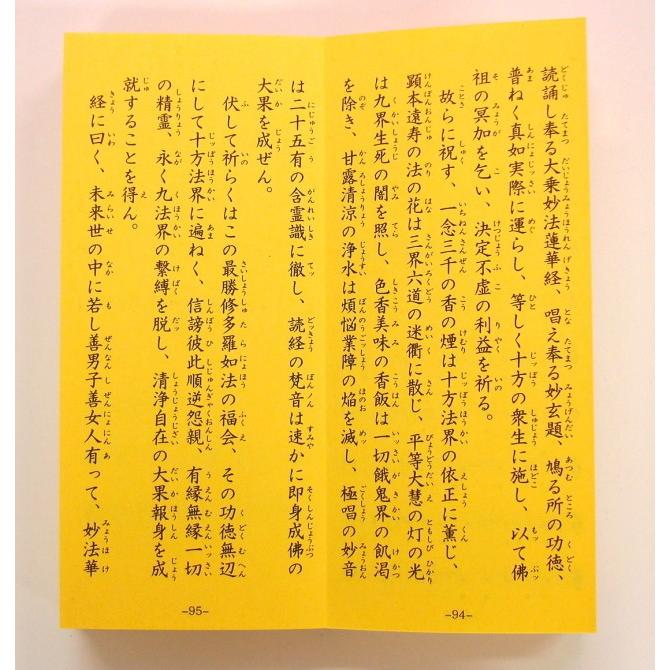 読誦し奉る大乗妙法蓮華経、唱え奉る妙玄題、鳩る所の功徳、
普ねく真如実際に運らし、等しく十方の衆生に施し、以て佛
祖の冥加を乞い、決定不虚の利益を祈る。
故らに祝す、一念三千の香の煙は十方法界の依正に薫じ、
顕本遠寿の法の花は三界六道の迷衢に散じ、平等大慧の灯の光
は九界生死の闇を照し、色香美味の香飯は一切餓鬼界の飢渇
を除き、甘露清涼の浄水は煩悩業障の焔を滅し、極唱の妙音
–94–
は二十五有の含霊識に徹し、読経の梵音は速かに即身成佛の
大果を成ぜん。
伏して祈らくはこの最勝修多羅如法の福会、その功徳無辺
にして十方法界に遍ねく、信謗彼此順逆怨親、有縁無縁一切
の精霊、永く九法界の繋縛を脱し、清浄自在の大果報身を成
就することを得ん。
経に曰く、未来世の中に若し善男子善女人有って、妙法華
–95–